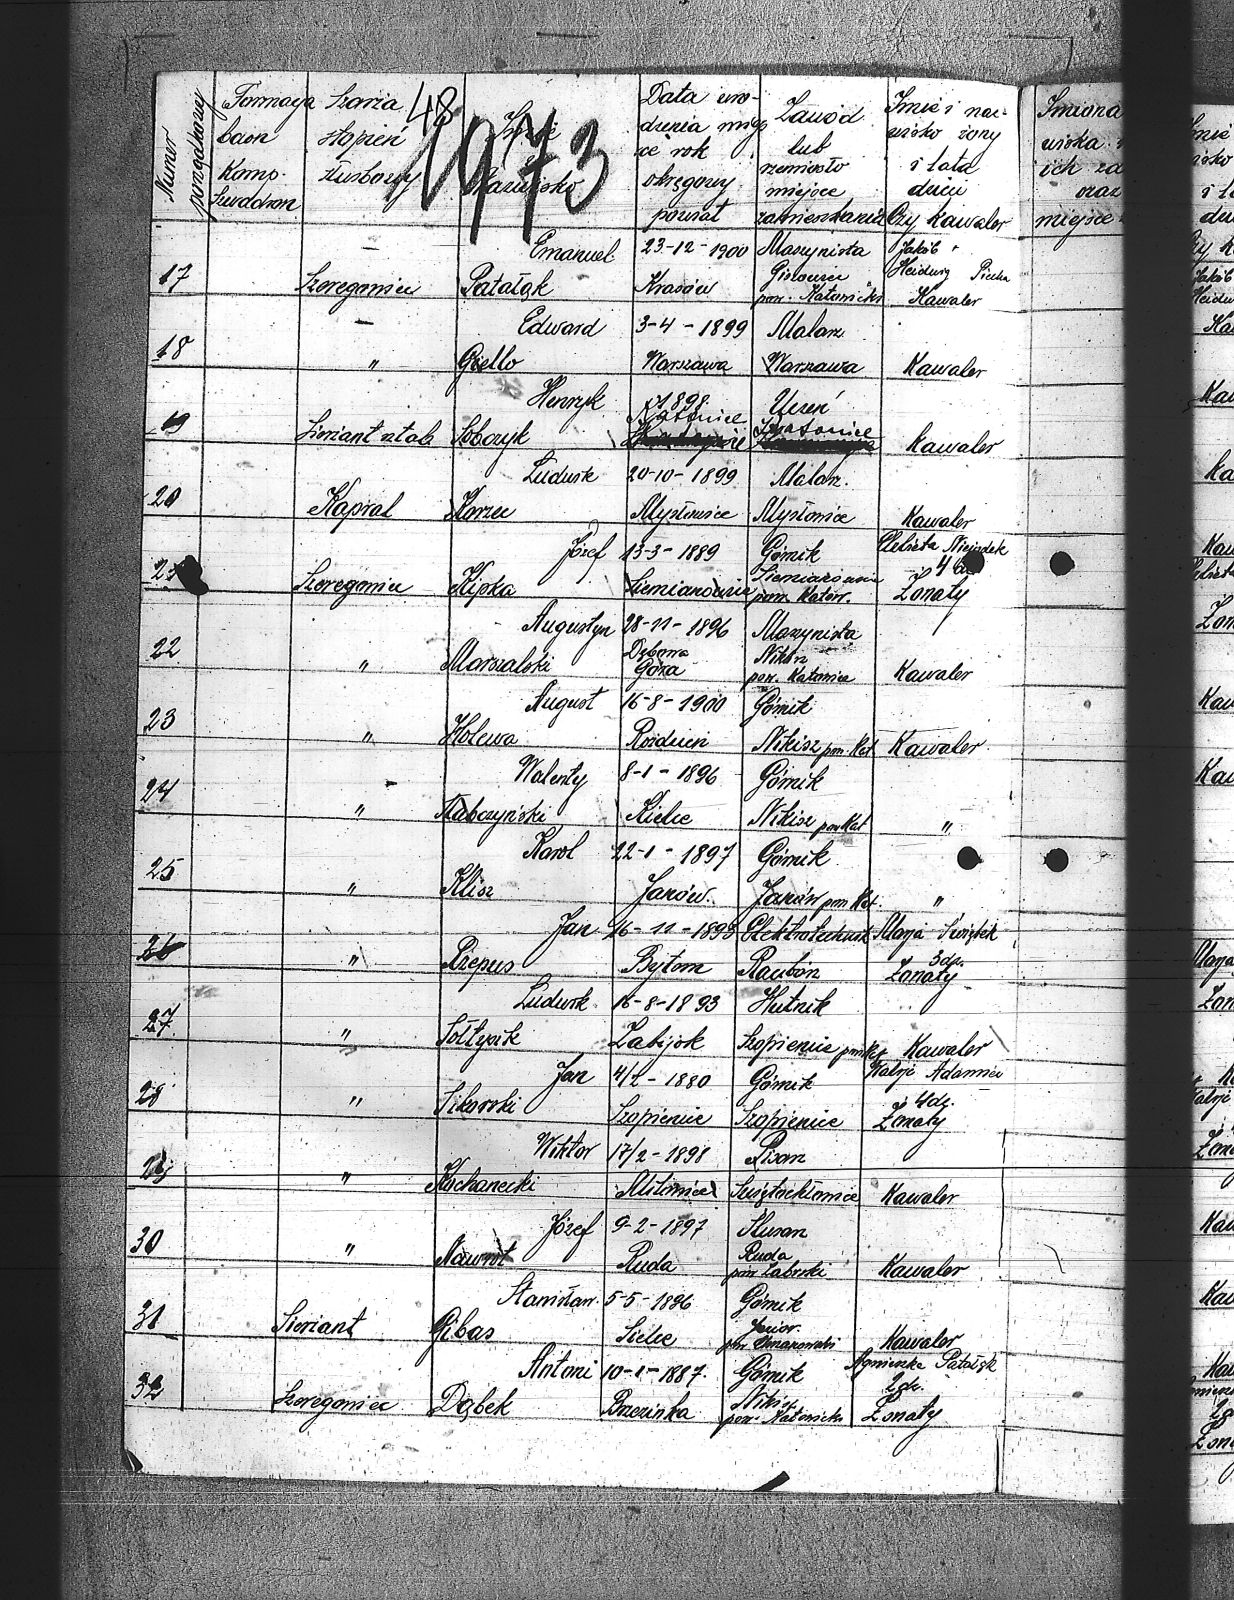 Numer porządkowy
Formacja baon Komp. Szwadron
Szarża stopień służbowy
48
1973
Imię Nazwisko
Data uro-
dzenia miejs
ce rok
okręgowy
powiat
Zawód
lub
rzemiosło
miejsce
zamieszkania
Imię i naz-
wisko żony
i lata
dzieci
Czy Kawaler
Imiona
wiska
ich za
oraz
miejsce
— Emanuel 23-12-1900 Maszynista Jakób
17 Szeregowiec Patałąk Krasów Giszowiec Heidwig
pow. Katowicki Kawaler
— Edward 3-4-1899 Malarz
18 " Giello Warszawa Warszawa Kawaler
Henryk 1898 Uczeń
Katowice Katowice
19 Sierżant sztab Sobczyk Kawaler
Ludwik 20-10-1899 Malarz
20 Kapral Korzec Mysłowice Mysłowice Kawaler
Józef 13-3-1889 Górnik Elebieta
Siemianowice
Szeregowiec Kipka Siemianowice pow. Katow. Żonaty
Augustyn 28-11-1896 Maszynista
22 Dąbowa Nikisz
" Marszalski Góra pow. Katowice Kawaler
August 16-8-1900 Górnik
23 " Holewa Rozdzień Nikisz pow. Kat. Kawaler
Walenty 8-1-1896 Górnik
24 " Kielce Nikisz pow Kat "
Karol 22-1-1897 Górnik
25 " Klisz Janów Janów pow. Kat. "
Jan 16-11-1893 Elektrotechnik Marja Świątek
26 " Rzepus Bytom Raubón 3dz. Żonaty
Ludwik 16-8-1893 Hutnik
27 " Sołtysik Zabijok Szopienice pow Kat Kawaler
Jan 4/2-1880 Górnik
28 " Sikorski Szopienice Szopienice 4dz. Żonaty
Wiktor 17/2-1898 Pisarz
29 " Kochanecki Świętochłowice Kawaler
Józef 9-2-1897 Ślusarz
30 " Nawrot Ruda Ruda
pow Zabrski Kawaler
Stanisław 5-5-1896 Górnik
31 Sierżant Gibas Sielce Kawaler
Antoni 10-1-1887. Górnik Agnieszka Patałąk
2dz.
32 Szeregowiec Dąbek Brzezinka Nikisz
pow. Katowicki Żonaty